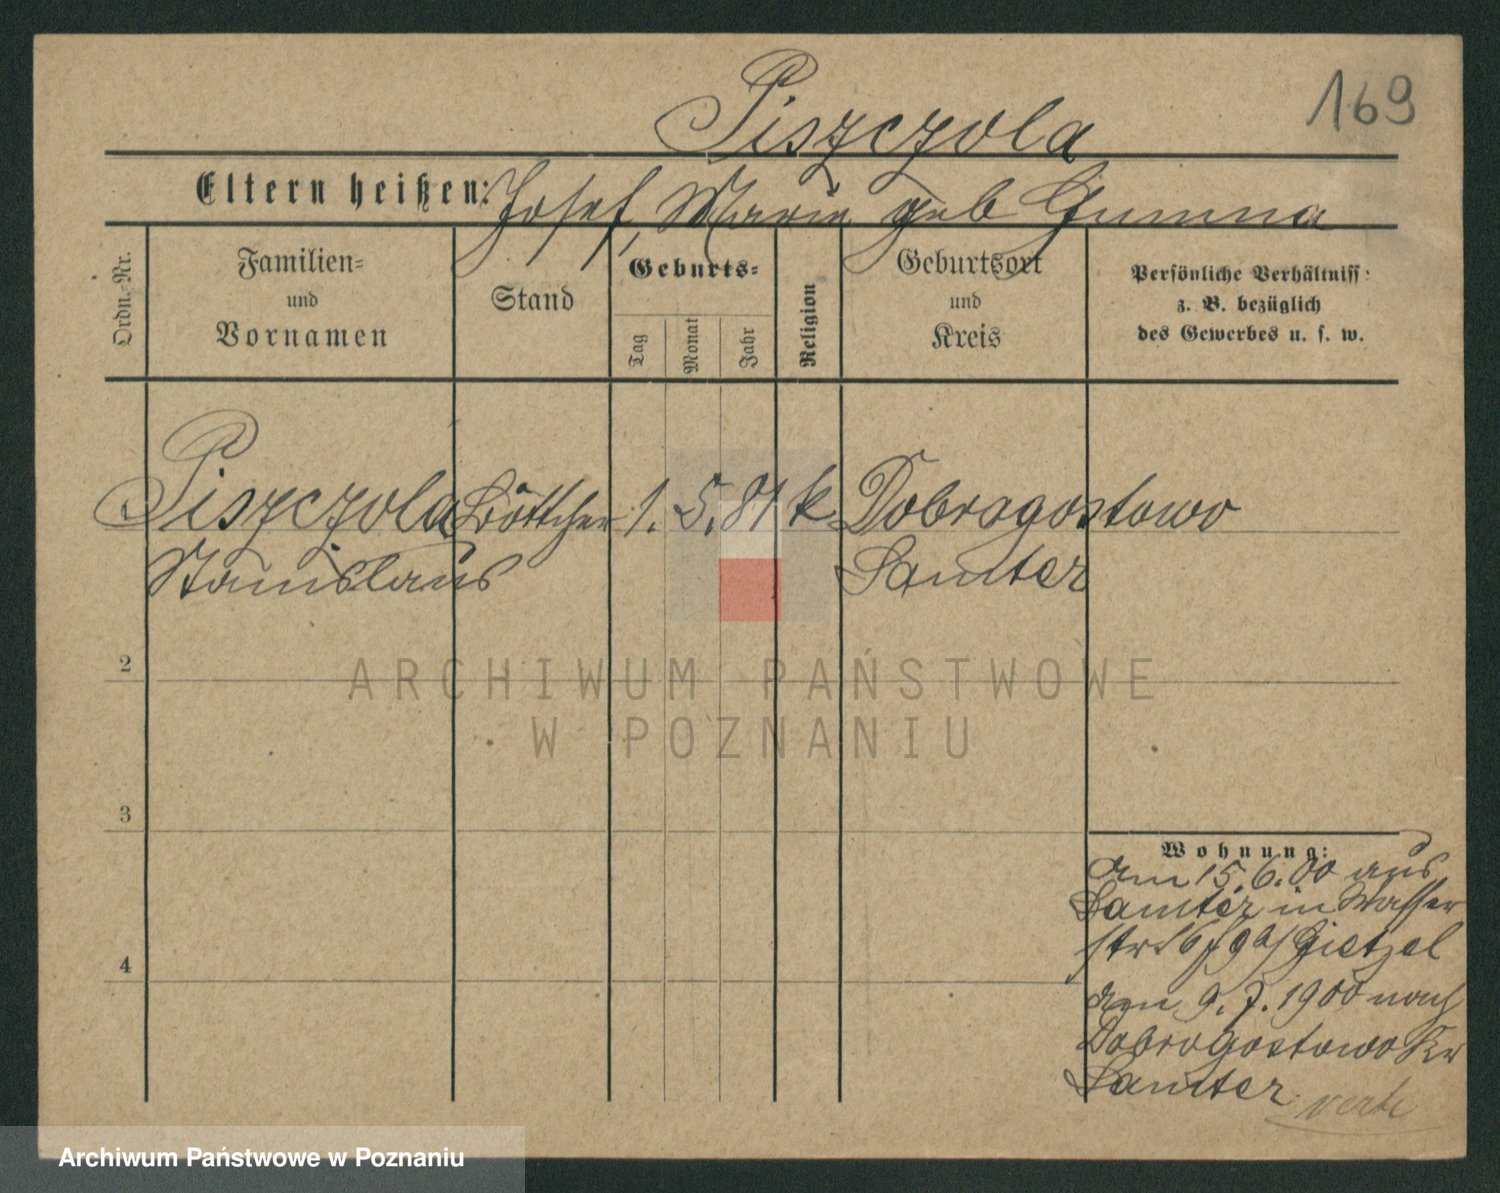 169
Piszczola
Eltern heißen: Josef, Marie geb Gumna
Ordn.-Nr.
Familien-
und
Vornamen
Stand
Geburts-
Tag
Monat
Jahr
Religion
Geburtsort
und
Kreis
Persönliche Verhältniss:
z. B. bezüglich
des Gewerbes u. s. w.
1 Piszczola Böttcher 1. 5. 81 k Dobrogostowo
Stanislaus Samter
2
ARCHIWUM PAŃSTWOWE
W POZNANIU
3
4
Wohnung:
am 15.6.00 aus
Samter in Wasser
str
am 9.7.1900 nach
Dobrogostowo Kr
Samter
verte
Archiwum Państwowe w Poznaniu